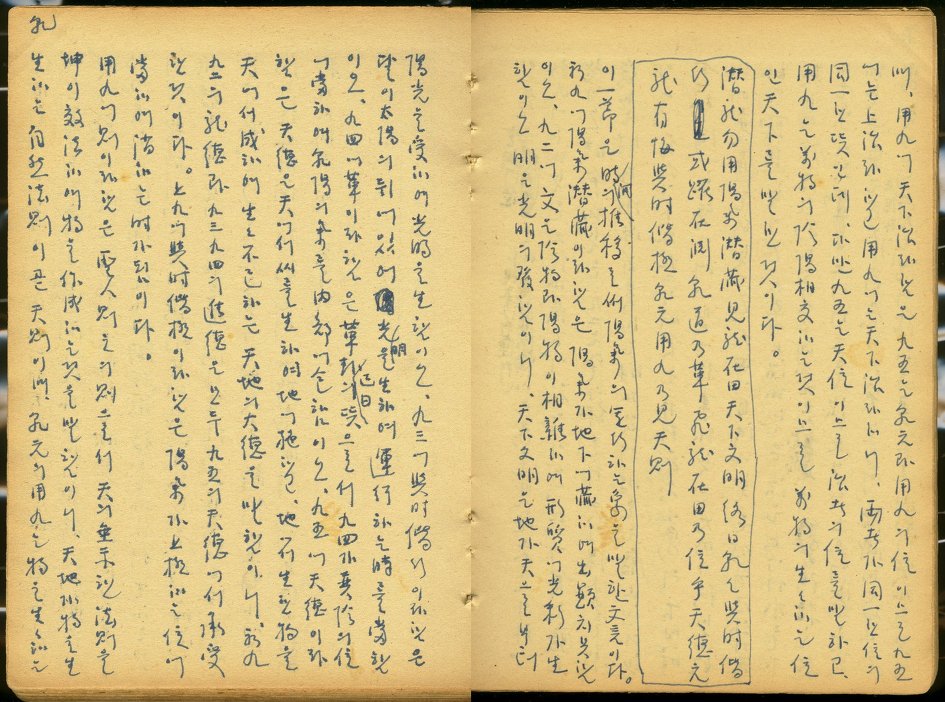 며, 用九에 天下治라함은 九五는 乾元即用九의 位이므로 九五
에는 上治라하고 用九에는 天下治라하니, 兩者가 同一한 位의
同一한 인데, 다만 九五는 天位이므로 治者의 位를 말하고,
用九는 萬物의 陰陽相交하는것이므로 萬物의 生生하는 位
인 天下를 말한것이다.
潛龍勿用陽氣潛藏見龍在田天下文明終日乾乾與時偕
行 或躍在淵乾道乃革飛龍在田乃位乎天德亢
龍有悔與時偕極乾元用九乃見天則
이一節은 時間의 推移를 써 陽氣의 運行하는 象을 말한 文意이다.
初九에 陽氣潛藏이라함은 陽氣가 地下에 藏하여 出顯치못함
이오, 九二에 文은 陰物即陽物이 相雜하여 形質에 光彩가 生
함이오 明은 光明의 發함이니, 天下文明은 地가 天으로부터
乾
陽光을 受하여 光明을 生함이오, 九三에 與時偕行이라함은
달이 太陽의 뒤에 있어 光明을 生하며 運行하는 時를 當함
이오, 九四에 革이라함은 革卦의 已日 으로서 九四가 陰의 位
에 當하여 乾陽의 氣를 內部에 含함이오, 九五에 天德이라
함은 天德은 天에서 씨를 生하여 地에 施하고, 地에서 生한 物을
天에서 成하여 生生不已하는 天地의 大德을 말함이니, 初九
九二의 龍德即九三九四의 進德은 모두 九五의 天德에서 承受
한것이다. 上九에 與時偕極이라함은 陽氣가 上極하는 位에
當하여 消하는 時가 이다.
用九에 則이라함은 人則之의 則으로서 天의 垂示한 法則을
坤이 效法하여 物을 作成하는것을 말함이니, 天地가 物을 生
生하는 自然法則이 곧 天則이며, 乾元의 用九는 物을 生生하는